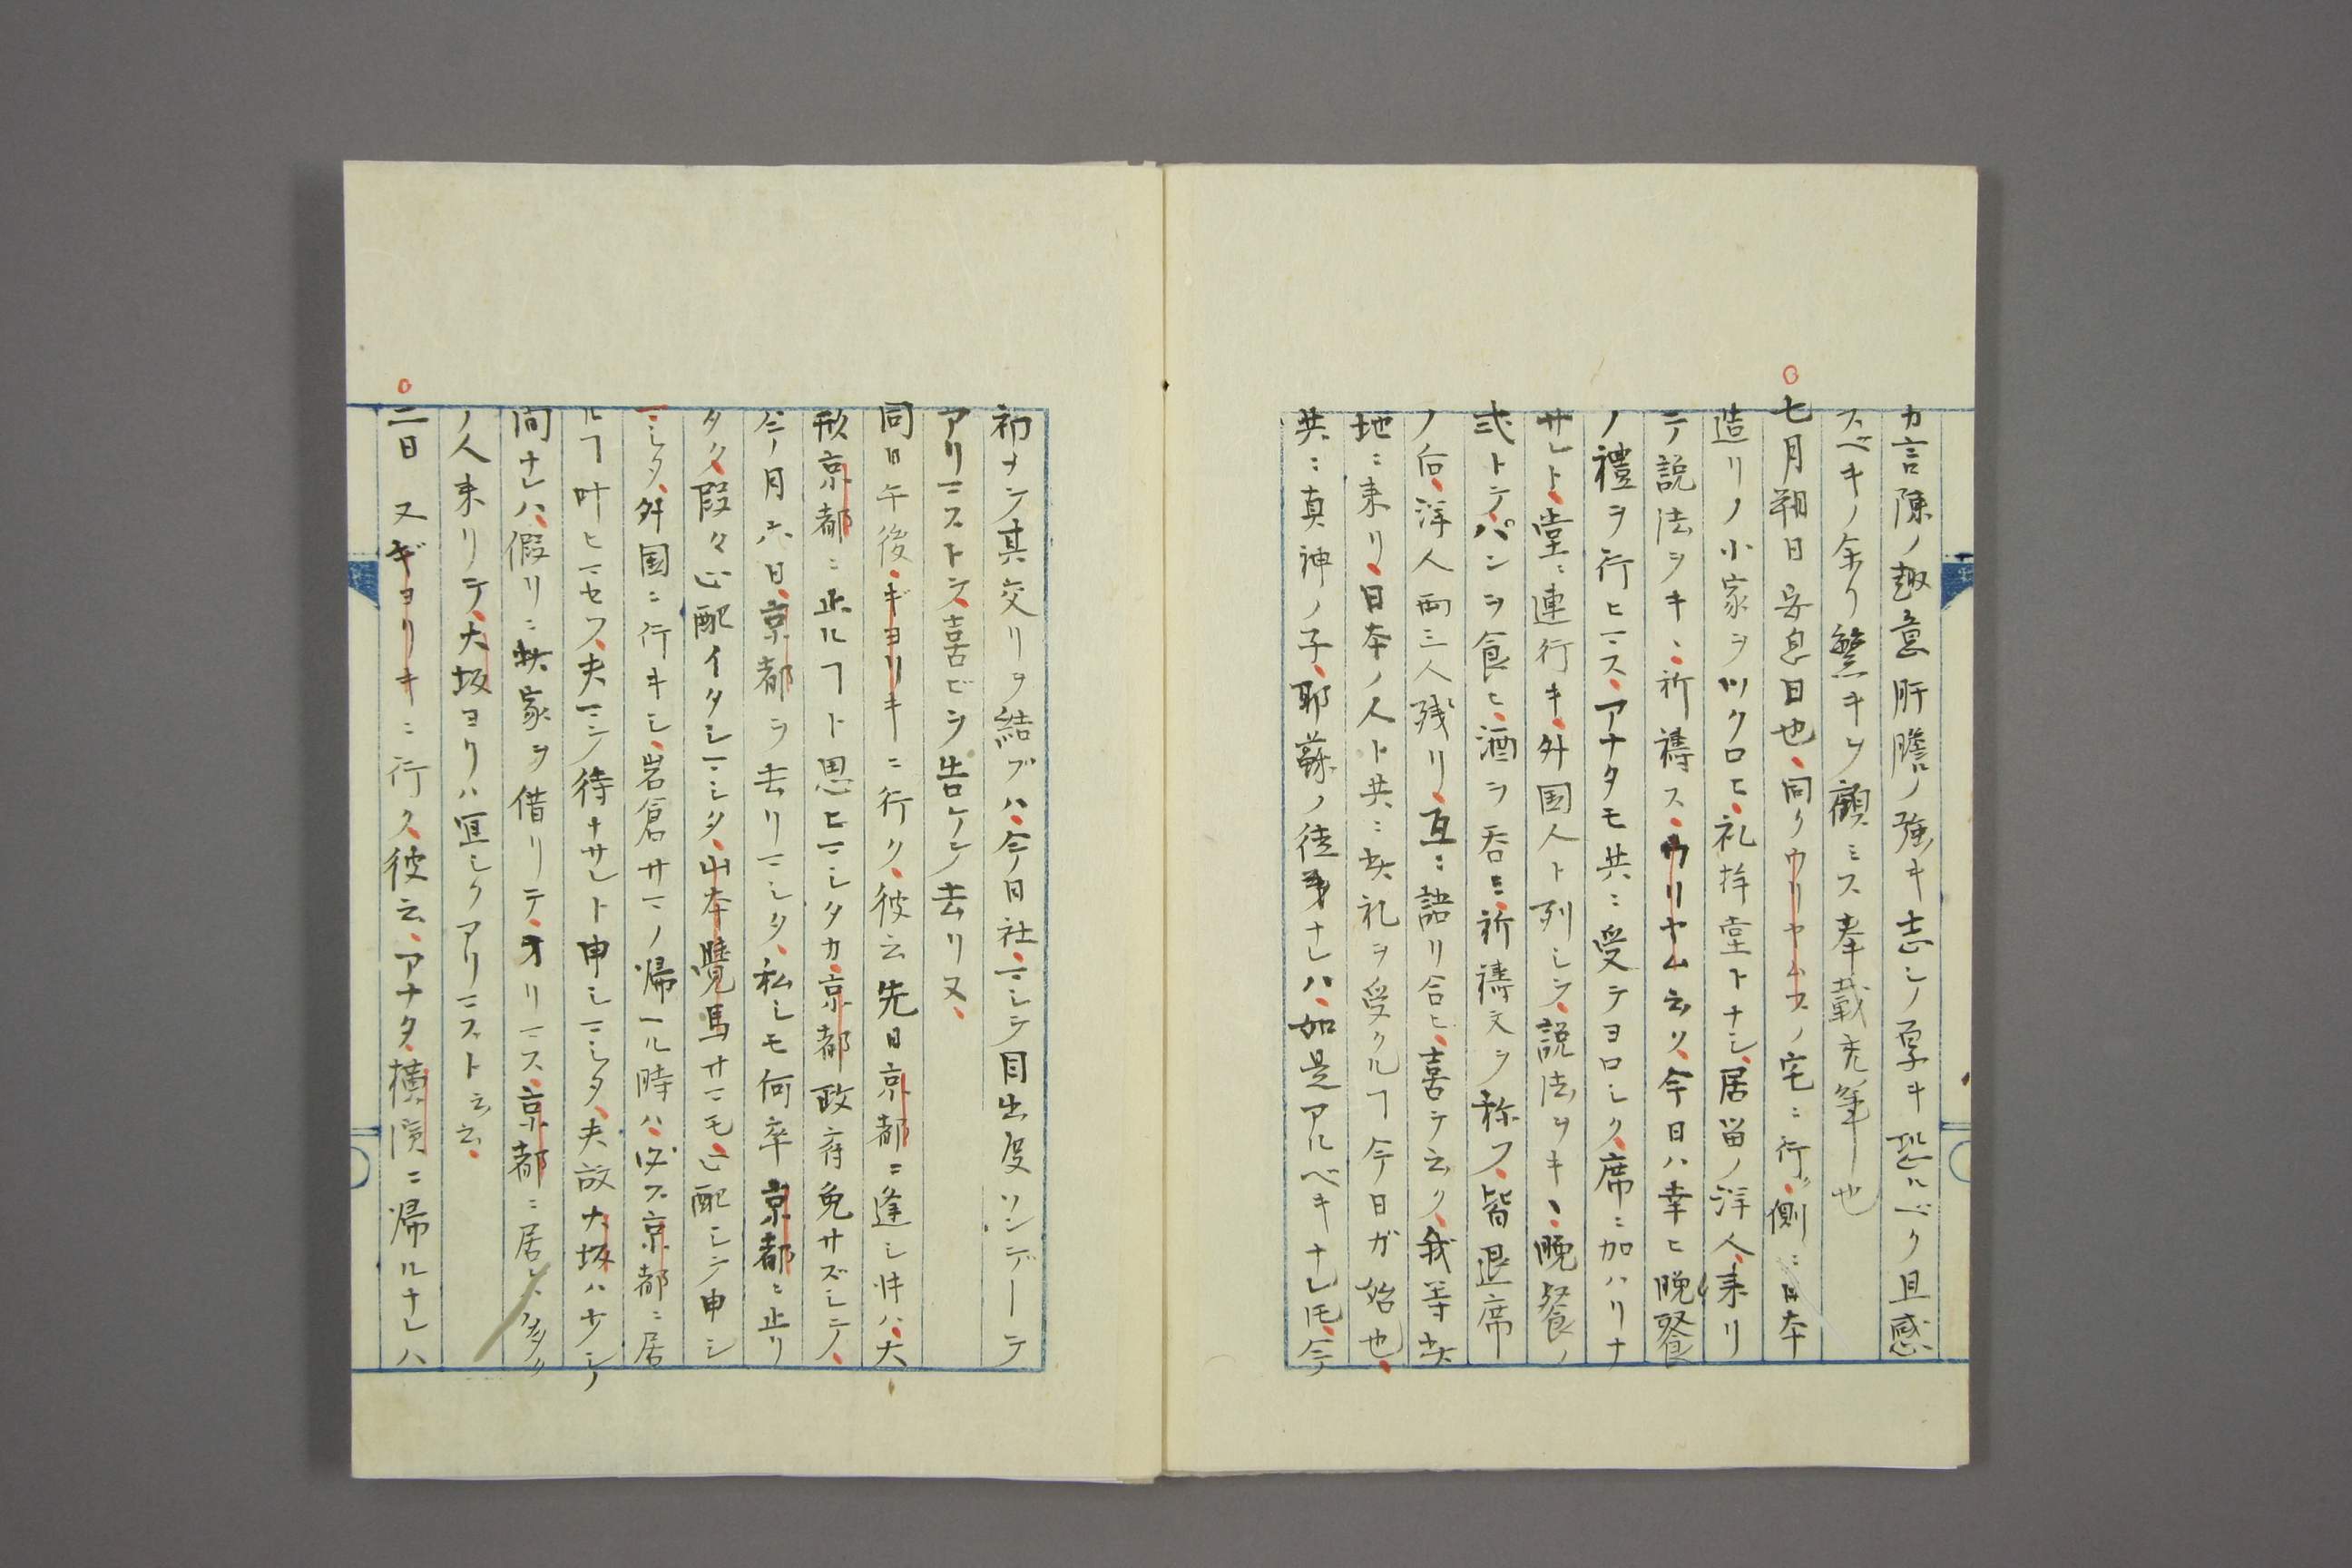 カ言陳ノ趣意肝膽ノ強キ志シノ厚キ恐ルベク且感
スベキノ余リ繁キヲ顧ミス奉載充筆也
七月朔日安息日也、同クウリヤムスノ宅ニ行、側ニ日本
造リノ小家ヲツクロヒ、礼拝堂トナシ、居留ノ洋人、来リ
テ説法ヲキヽ祈禱ス、ウリヤム云ク、今日ハ幸ヒ晩餐
ノ禮ヲ行ヒマス、アナタモ共ニ受テヨロシク、席ニ加ハリナ
サレト、堂ニ連行キ、外国人ト列シテ、説法ヲキヽ、晩餐ノ
式トテ、パンヲ食ヒ、酒ヲ呑ミ、祈禱文ヲ称フ、皆退席
ノ后、洋人両三人残リ、互ニ語リ合ヒ、喜テ云ク、我等此
地ニ来リ、日本ノ人ト共ニ此礼ヲ受クルヿ今日ガ始也、
共ニ真神ノ子、耶蘇ノ徒弟ナレハ、如是アルベキナレ𪜈、今
初メテ其交リヲ結ブハ、今日社、マシテ目出度ソンデーテ
アリマストテ、喜ビヲ告ケテ去リヌ、
同日午後、ギヨリキニ行ク、彼云先日京都ニ逢シ時ハ、大
形京都ニ止ルヿト思ヒマシタカ、京都政府免サズシテ、
今ノ月六日、京都ヲ去リマシタ、私シモ何卒京都ニ止リ
タク、段々心配イタシマシタ、山本覺馬サマモ、心配シテ申シ
マシタ、外国ニ行キシ、岩倉サマノ帰マル時ハ、必ス京都ニ居
ルヿ叶ヒマセフ、夫マテ待ナサレト申シマシタ、夫故大坂ハ少シノ
間ナレハ、假リニ此家ヲ借リテ、オリマス、京都ニ居レハ、多ク
ノ人来リテ、大坂ヨリハ宜シクアリマスト云云、
二日　又ギヨリキニ行ク、彼云、アナタ、横濱ニ帰ルナレハ